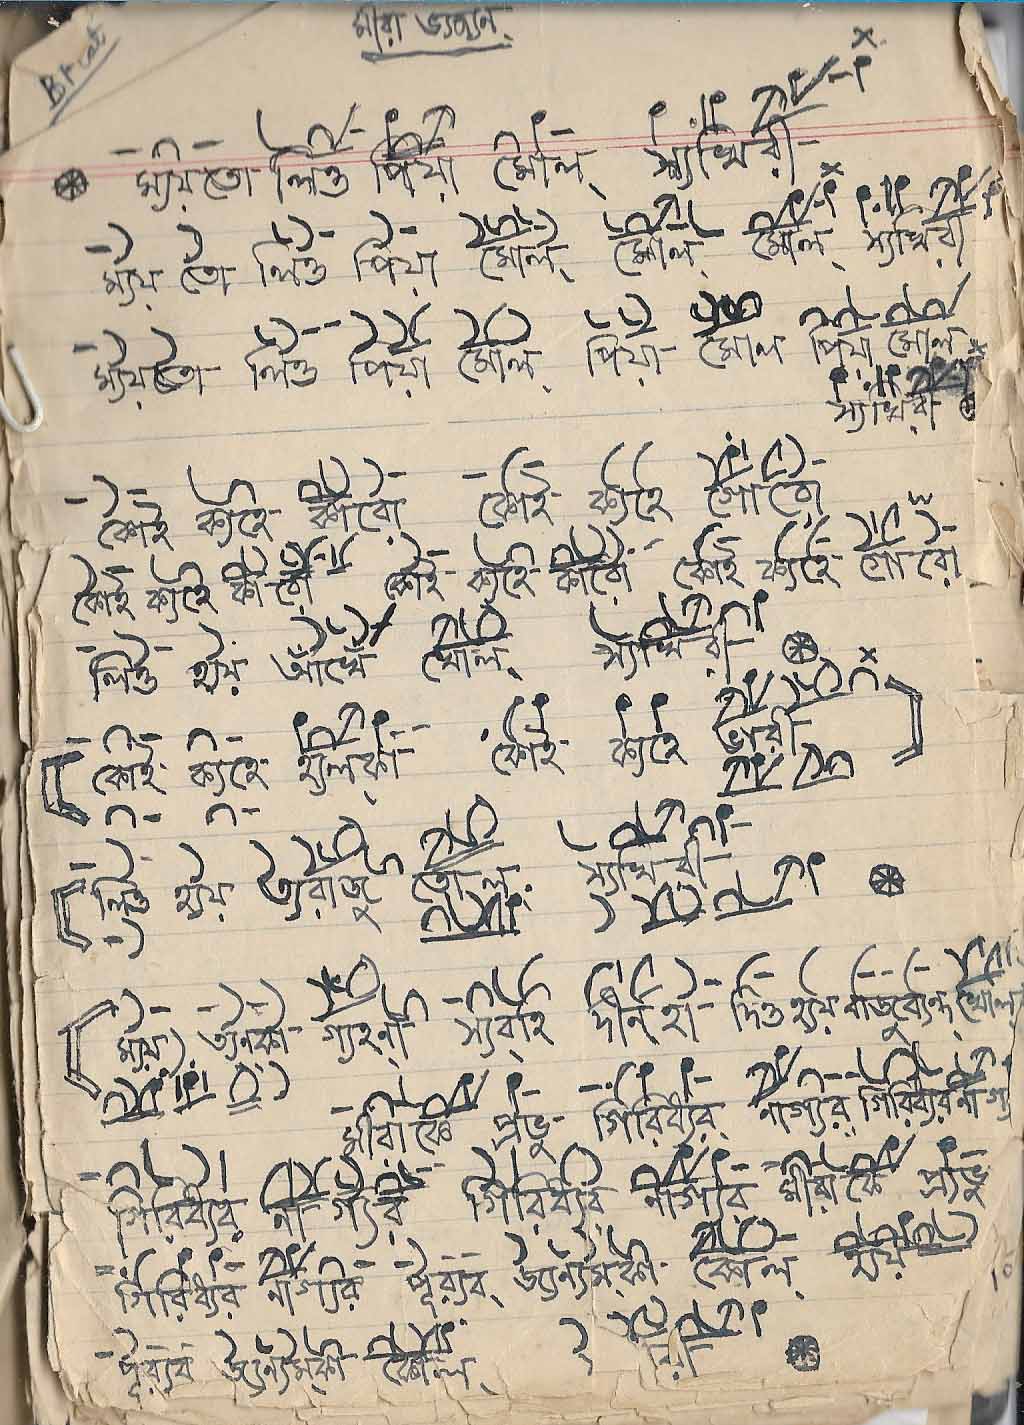 মীরা ভ্যজ্যন্
ম্যয় তো লিও পিয়া মোল্ স্যখিরী
ম্যয় তো লিও পিয়া মোল্ মোল্ মোল্ স্যখিরী
ম্যয় তো লিও পিয়া মোল্ পিয়া মোল পিয়া মোল্
স্যখিরী
কোই ক্যহে কারো কোই ক্যহে গোরো
কোই ক্যহে কারো কোই ক্যহে কারো কোই ক্যহে গোরো
লিও হ্যয় আঁখে খোল্ স্যখিরী
কোই ক্যহে হ্যল্কা কোই ক্যহে ভারী
লিও হ্যয় ত্যরাজু তোল্ স্যখিরী
ম্যয় ত্যনকা গ্যহনা স্যব্হি দীন্হা দিও হ্যয় বাজুব্যন্দ্ খোল্
মীরাকে প্রভু গিরিধ্যর্ নাগ্যর্ গিরিধ্যর নাগ্য
গিরিধ্যর্ নাগ্যর্ গিরিধ্যর্ নাগ্যর মীরাকে প্র্যভু
গিরিধ্যর নাগ্যর পূর্যব্ জ্যন্যম্কী কোল্ ম্যয়
পূর্যব জ্যন্যম্কী কোল্ রী